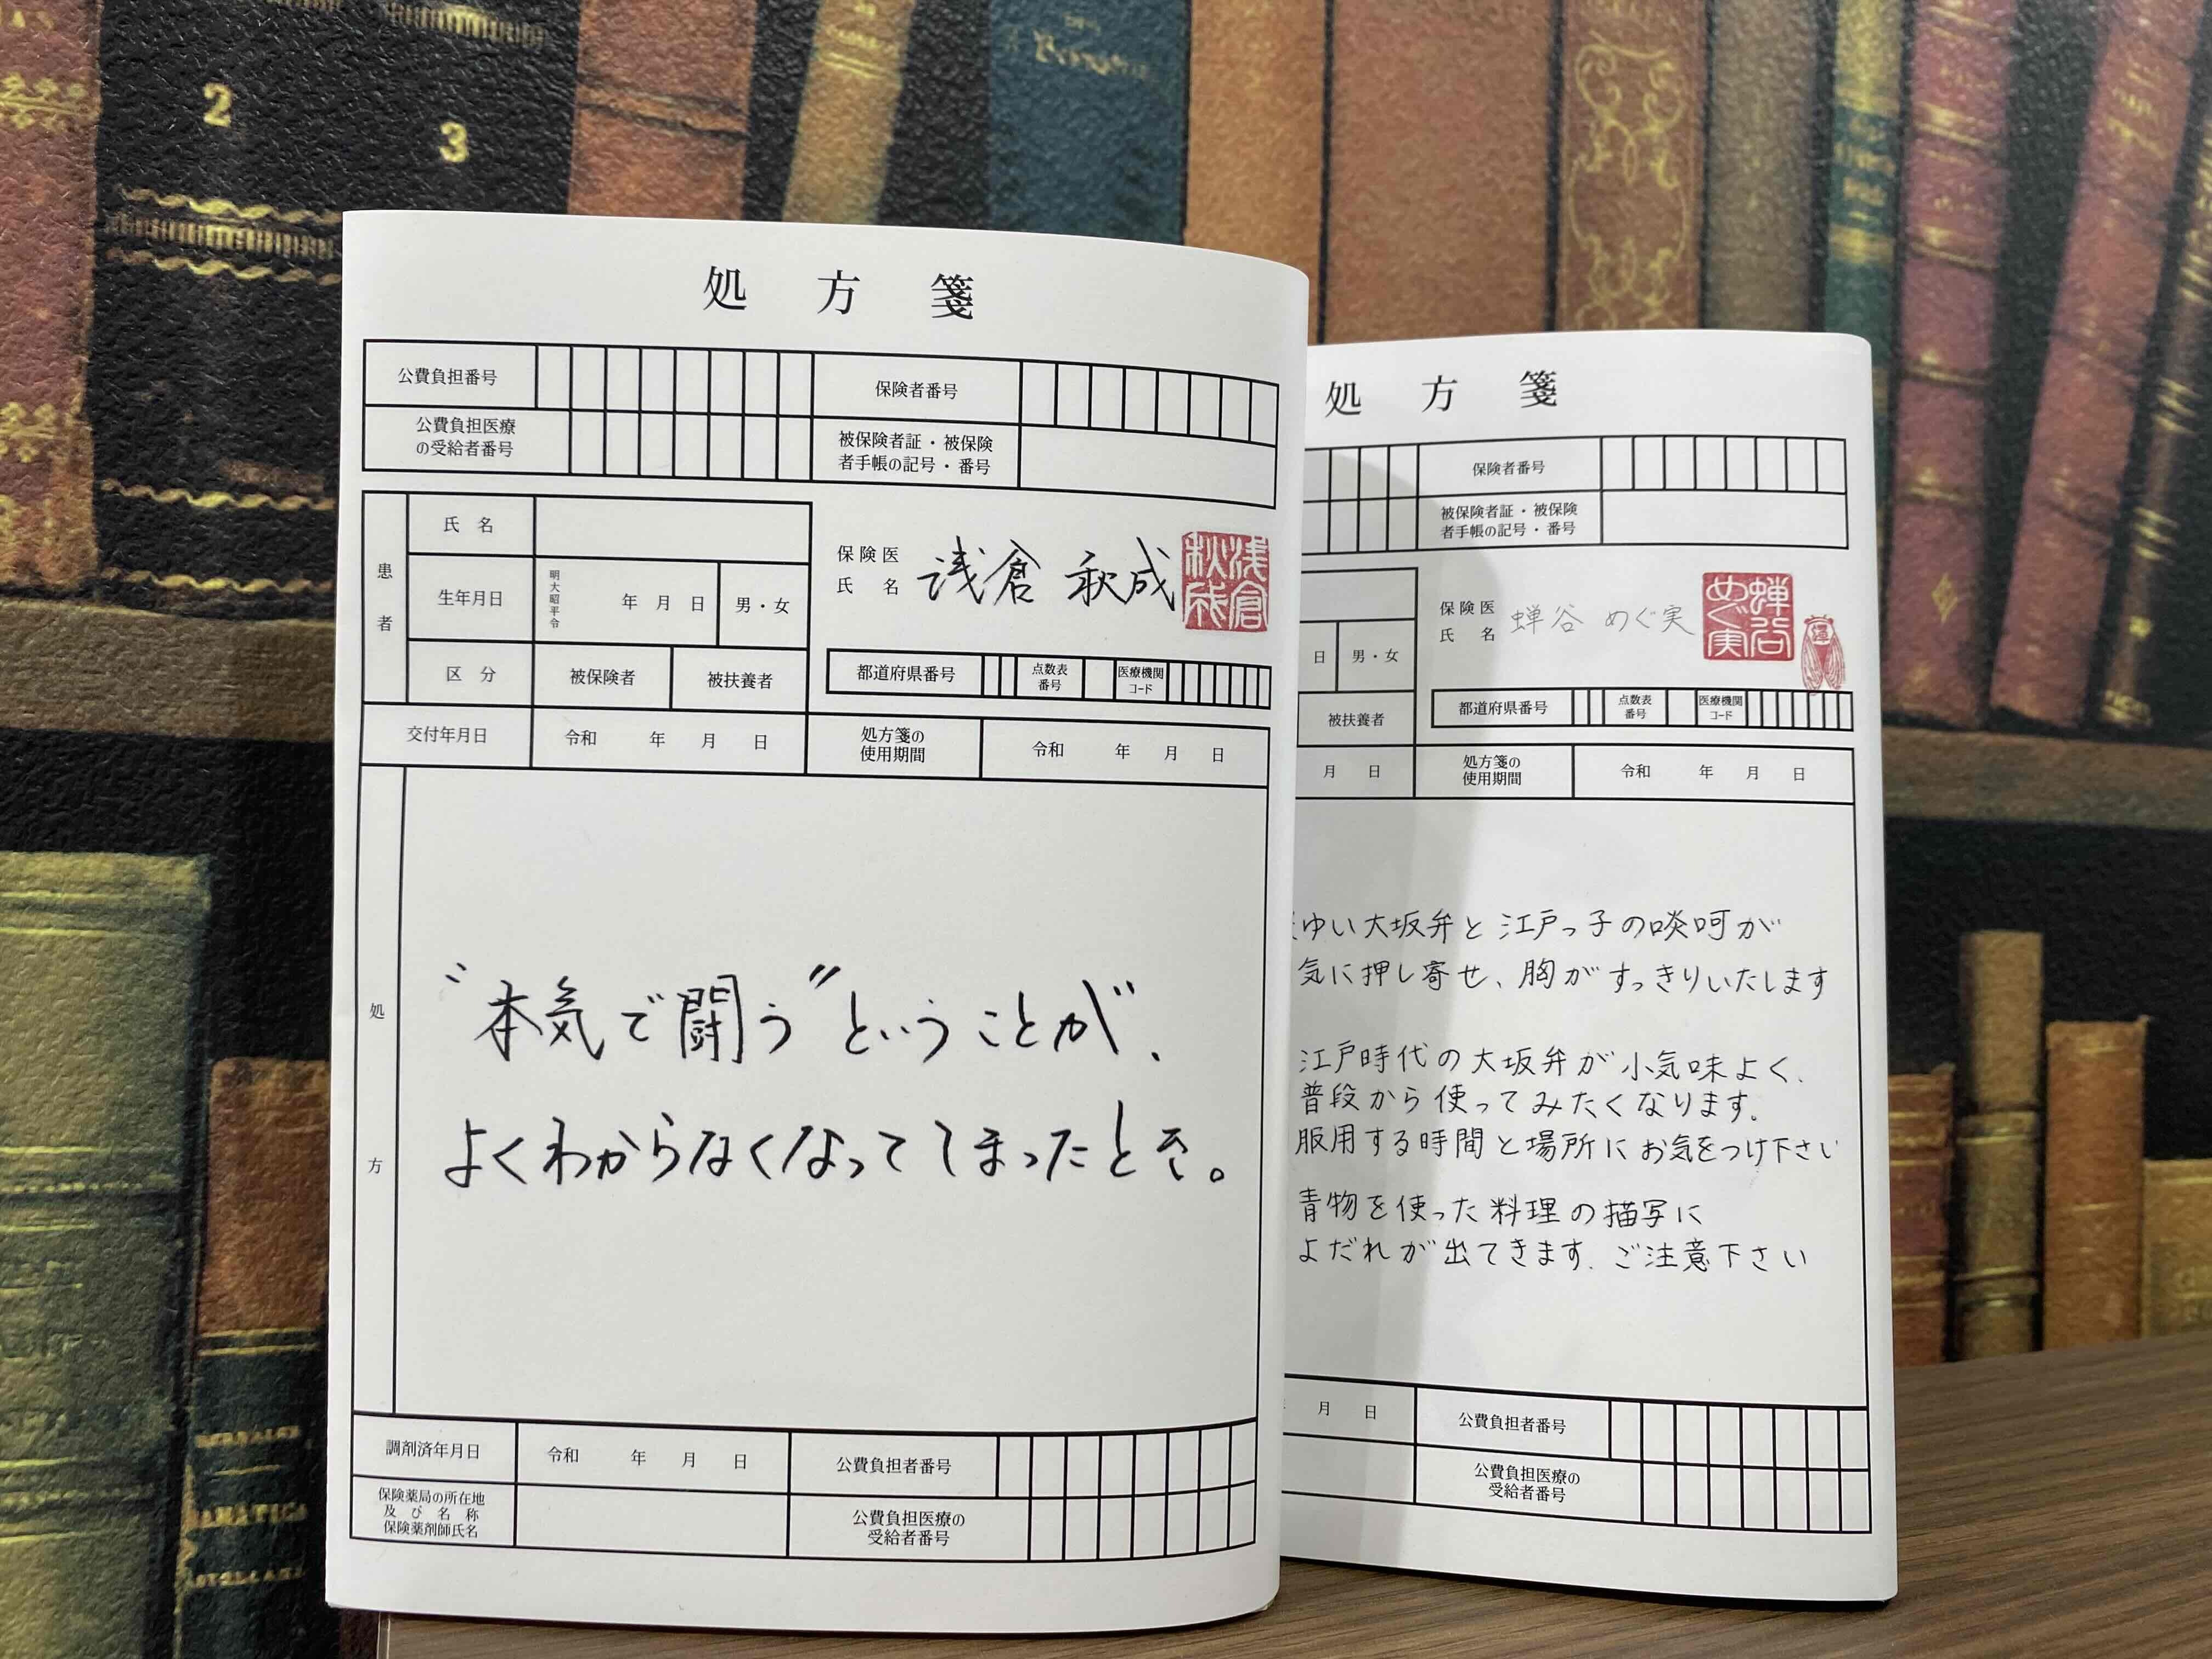 2
3
処方箋
公費負担番号
保険者番号
公費負担医療
の受給者番号
被保険者証・被保険
者手帳の記号・番号
患者
氏名
生年月日
明大昭平令
年 月 日
男・女
区分
被保険者
被扶養者
保険医
氏名
浅倉 秋成
浅倉秋成
都道府県番号
点数表
番号
医療機関
コード
交付年月日
令和 年 月 日
処方箋の
使用期間
令和 年 月 日
処方
“本気で闘う”ということが、
よくわからなくなってしまったとき。
調剤済年月日
令和 年 月 日
公費負担者番号
保険薬局の所在地
及び名称
保険薬剤師氏名
公費負担医療の
受給者番号
処方箋
保険者番号
被保険者証・被保険
者手帳の記号・番号
日
男・女
被扶養者
保険医
氏名
蝉谷 めぐ実
蝉谷めぐ実
都道府県番号
点数表
番号
医療機関
コード
月 日
処方箋の
使用期間
令和 年 月 日
ゆい大坂弁と江戸っ子の啖呵が
気に押し寄せ、胸がすっきりいたします
江戸時代の大坂弁が小気味よく、
普段から使ってみたくなります。
服用する時間と場所にお気をつけ下さい
青物を使った料理の描写に
よだれが出てきます。ご注意下さい
月 日
公費負担者番号
公費負担医療の
受給者番号